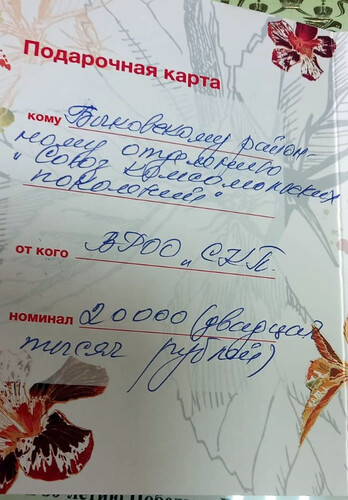 Подарочная карта
кому Быковскому район-
ному отделению
"Союз комсомольских
поколений"
от кого ВРОО "СКП.
номинал 20000 (двадцать
тысяч рублей)
летию Победы